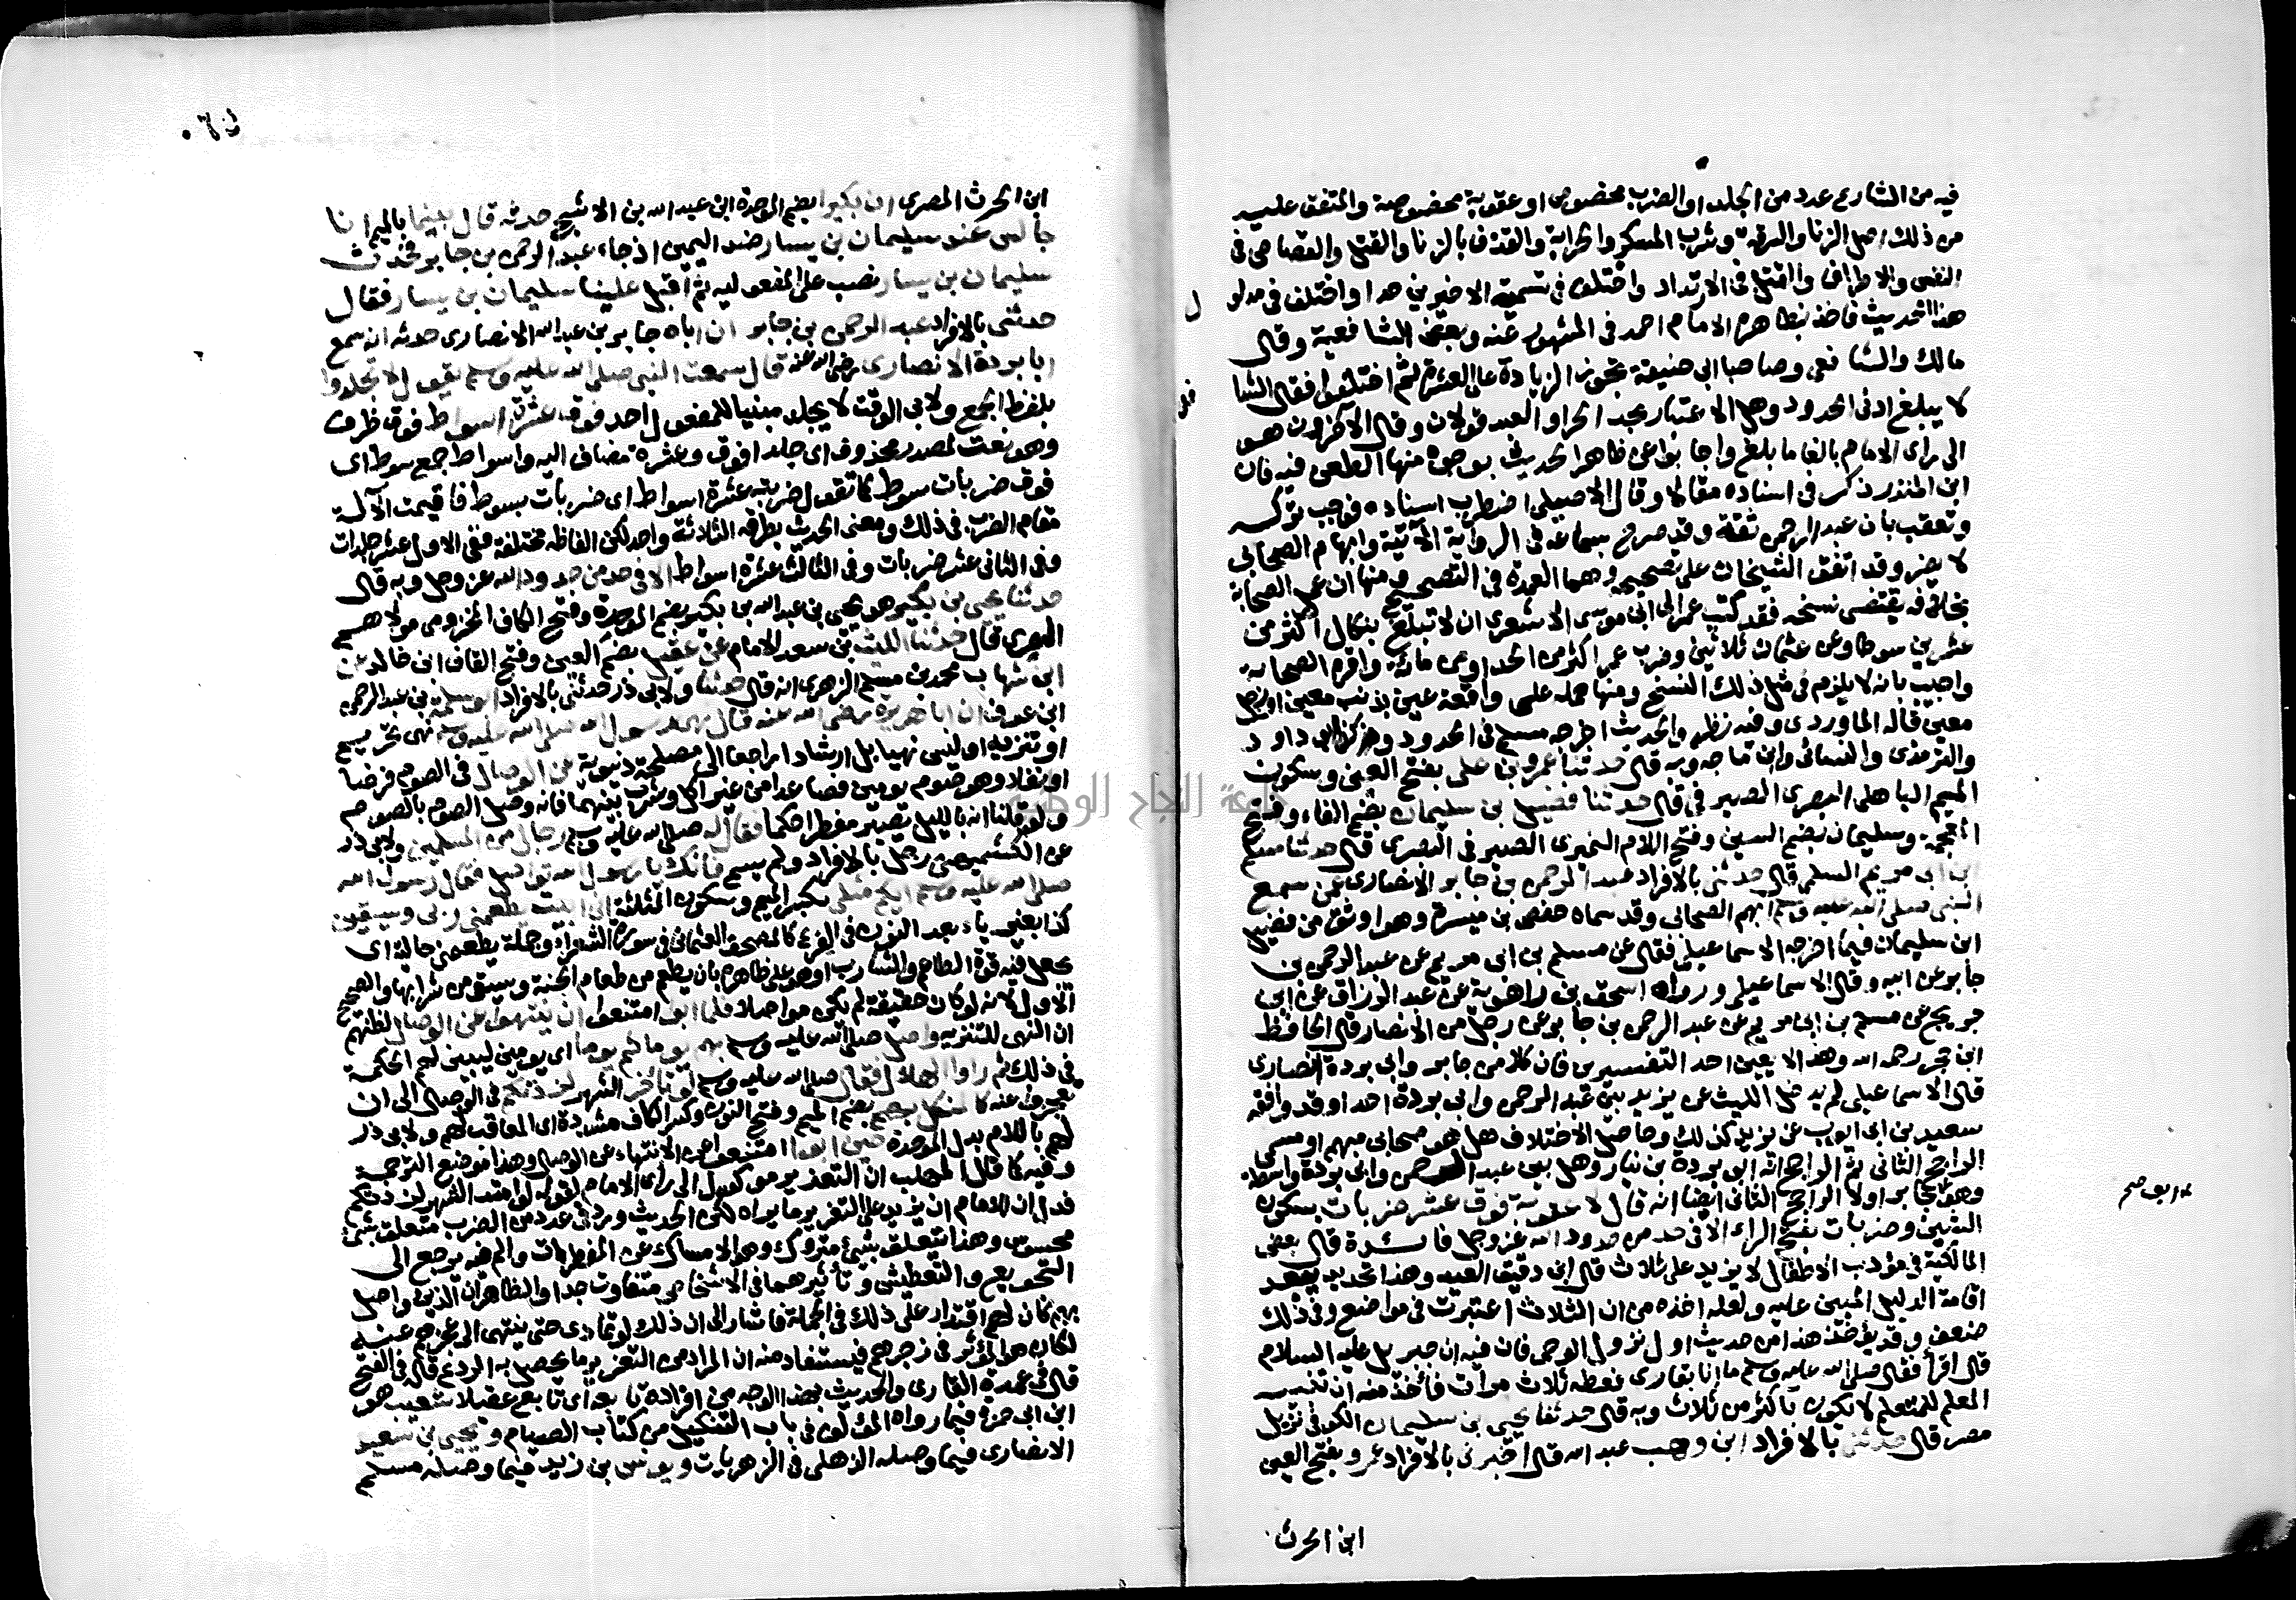 فيه من الشارع عدد من الجلد او الضرب مخصوص او عقوبة مخصوصة والمتفق عليه
من ذلك اصل الزنا والسرقة وشرب المسكر والحرابة والقذف بالزنا والقتل والقصاص في
النفس والاطراف والقتل في الارتداد واختلف في تسمية الاخيرين حدا واختلف في مدلول
هذا الحديث فاخذ بظاهره الامام احمد في المشهور عنه وبعض الشافعية وقال
مالك والشافعي وصاحبا ابي حنيفة تجوز الزيادة على العشرة ثم اختلفوا فقال الشافعي
لا يبلغ ادنى الحدود وهل الاعتبار بحد الحر او العبد قولان وقال الآخرون هو
الى راى الامام بالغا ما بلغ واجابوا عن ظاهر الحديث بوجوه منها الطعن فيه فان
ابن المنذر ذكر في اسناده مقالا وقال الاصيلي اضطرب اسناده فوجب تركه
وتعقب بان عبد الرحمن ثقة وقد صرح بسماعه في الرواية الآتية وابهام الصحابي
لا يضر وقد اتفق الشيخان على تصحيحه وهما العمدة في التصحيح ومنها ان عمل الصحابة
بخلافه يقتضي نسخه فقد كتب عمر الى ابي موسى الاشعري ان لا تبلغ بنكال اكثر من
عشرين سوطا وعن عثمان ثلاثين وضرب عمر اكثر من الحد او من مائة واقره الصحابة
واجيب بانه لا يلزم في مثل ذلك النسخ ومنها حمله على واقعة عين بذنب معين او رجل
معين قاله الماوردي وفيه نظر والحديث اخرجه مسلم في الحدود وكذا ابو داود
والترمذي والنسائي وابن ماجه وبه قال حدثنا عمرو بن علي بفتح العين وسكون
الميم الباهلي البصري الصيرفي قال حدثنا فضيل بن سليمان بضم الفاء وفتح
المعجمة وسليمان بضم السين وفتح اللام النميري الصيرفي البصري قال حدثنا مسلم
ابن ابي مريم السلمي قال حدثني بالافراد عبد الرحمن بن جابر الانصاري عمن سمع
النبي صلى الله عليه وسلم ابهم الصحابي وقد سماه حفص بن ميسرة وهو اوثق من فضيل
ابن سليمان فيما اخرجه الاسماعيلي فقال عن مسلم بن ابي مريم عن عبد الرحمن بن
جابر عن ابيه وقال الاسماعيلي ورواه اسحق بن راهوية عن عبد الرزاق عن ابن
جريج عن مسلم بن ابي مريم عن عبد الرحمن بن جابر عن رجل من الانصار قال الحافظ
ابن حجر رحمه الله وهذا لا يعين احد التفسيرين فان كلا من جابر وابي بردة انصاري
قال الاسماعيلي لم يدخل الليث عن يزيد بين عبد الرحمن وابي بردة احدا وقد وافقه
سعيد بن ابي ايوب عن يزيد كذلك وحاصل الاختلاف هل هو صحابي مبهم او مسمى
الراجح الثاني ثم الراجح انه ابي بردة بن نيار وهل بين عبد الرحمن وابي بردة واسطة
وهو جابر اولا الراجح الثاني ايضا انه قال لا عقوبة فوق عشر ضربات بسكون
الشين وضربات بفتح الراء الا في حد من حدود الله عز وجل فائدة قال بعض
المالكية في مؤدب الاطفال لا يزيد على ثلاث قال ابن دقيق العيد وهذا تحديد يبعد
اقامة الدليل المبين عليه ولعله اخذه من ان الثلاث اعتبرت في مواضع وفي ذلك
ضعف وقد يؤخذ هذا من حديث اول نزول الوحي فان فيه ان جبريل عليه السلام
قال اقرأ فقال صلى الله عليه وسلم ما انا بقاري فغطه ثلاث مرات فأخذ منه ان تنبيه
المعلم للمتعلم لا يكون باكثر من ثلاث وبه قال حدثنا يحيى بن سليمان الكوفي نزيل
مصر قال حدثني بالافراد ابن وهب عبد الله قال اخبرني بالافراد عمرو بفتح العين
ابن الحرث
ابن الحرث المصري ان بكيرا بضم الموحدة ابن عبد الله بن الاشج حدثه قال بينما بالميم انا
جالس عند سليمان بن يسار ضد اليمين اذ جاء عبد الرحمن بن جابر فحدث
سليمان بن يسار نصب على المفعولية ثم اقبل علينا سليمان بن يسار فقال
حدثني بالافراد عبد الرحمن بن جابر ان اباه جابر بن عبد الله الانصاري حدثه انه سمع
ابا بردة الانصاري رضي الله عنه قال سمعت النبي صلى الله عليه وسلم يقول لا تجلدوا
بلفظ الجمع ولابي الوقت لا يجلد مبنيا للمفعول احد فوق عشرة اسواط فوق ظرف
وهو نعت لمصدر محذوف اى جلدا فوق وعشرة مضاف اليه واسواط جمع سوط اى
فوق ضربات سوط كما تقول ضربته عشرة اسواط اى ضربات بسوط فاقيمت الآلة
مقام الضرب في ذلك ومعنى الحديث بطرقه الثلاثة واحد لكن الفاظه مختلفة ففي الاول عشر جلدات
وفي الثاني عشر ضربات وفي الثالث عشرة اسواط الا في حد من حدود الله عز وجل وبه قال
حدثنا يحيى بن بكير هو يحيى بن عبد الله بن بكير بضم الموحدة وفتح الكاف المخزومي مولاهم
المصري قال حدثنا الليث بن سعد الامام عن عقيل بضم العين وفتح القاف ابن خالد عن
ابن شهاب محمد بن مسلم الزهري انه قال حدثنا ولابي ذر حدثني بالافراد ابو سلمة بن عبد الرحمن
ابن عوف ان ابا هريرة رضي الله عنه قال نهى رسول الله صلى الله عليه وسلم نهى تحريم
او تنزيه او ليس نهيا بل ارشادا راجعا الى مصلحة دنيوية عن الوصال في الصوم فرضا
او نفلا وهو صوم يومين فصاعدا من غير اكل وشرب بينهما فانه وصل الصوم بالصوم
ولو قلنا انه بالليل يصير مفطرا حكما فقال له صلى الله عليه وسلم رجال من المسلمين ولابي ذر
عن الكشميهني رجل بالافراد ولم يسم فانك يا رسول الله تواصل فقال رسول الله
صلى الله عليه وسلم ايكم مثلي بكسر الميم وسكون المثلثة اني ابيت يطعمني ربي ويسقين
كذا بغير ياء بعد النون في الفرع كالمصحف العثماني في سورة الشعراء وجملة يطعمني حالية اى
يجعل فيه قوة الطاعم والشارب او هو على ظاهره بان يطعم من طعام الجنة ويسقى من شرابها والصحيح
الاول لانه لو كان حقيقة لم يكن مواصلا فلما ابوا امتنعوا ان ينتهوا عن الوصال لظنهم
ان النهي للتنزيه واصل صلى الله عليه وسلم بهم يوما ثم يوما اى يومين ليبين لهم الحكمة
في ذلك ثم راوا الهلال فقال صلى الله عليه وسلم لو تأخر الشهر لزدتكم في الوصال الى ان
تعجزوا عنه كالمنكل بهم بضم الميم وفتح النون وكسر الكاف مشددة اى المعاقب لهم ولابي ذر
لهم باللام بدل الموحدة حين ابوا امتنعوا عن الانتهاء عن الوصال وهذا موضع الترجمة
وفيه كما قال المهلب ان التعزير موكول الى راى الامام لقوله لو امتد الشهر لزدتكم
فدل ان للامام ان يزيد على التعزير ما يراه لكن الحديث ورد في عدد من الضرب متعلق بشئ
محسوس وهذا يتعلق بشئ متروك وهو الامساك عن المفطرات والم فيه يرجع الى
التجويع والتعطيش وتأثيرهما في الاشخاص متفاوت جدا والظاهر ان الذين واصل
بهم كان لهم اقتدار على ذلك في الجملة فاشار الى ان ذلك لو تمادى حتى ينتهي الى عجزهم عنه
لكان هو المؤثر في زجرهم فيستفاد منه ان المراد من التعزير ما يحصل به الردع قاله في الفتح
قال في عمدة القاري والحديث بهذا الوجه من افراده تابعه اى تابع عقيلا شعيب هو
ابن ابي حمزة فيما رواه المؤلف في باب التنكيل من كتاب الصيام ويحيى بن سعيد
الانصاري فيما وصله الذهلي في الزهريات ويونس بن زيد فيما وصله مسلم